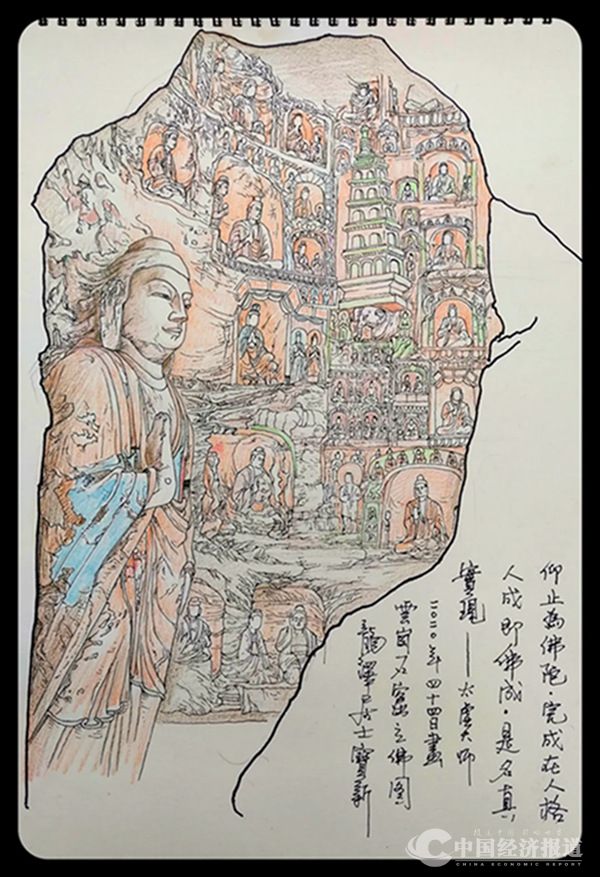 仰止為佛陀·完成在人格
人成即佛成·是名真
實現——太虚大师
二〇二〇年四十四日畫
雲岡石窟之佛图
龍澤居士寶新
中国经济报道
CHINA ECONOMIC REPORT